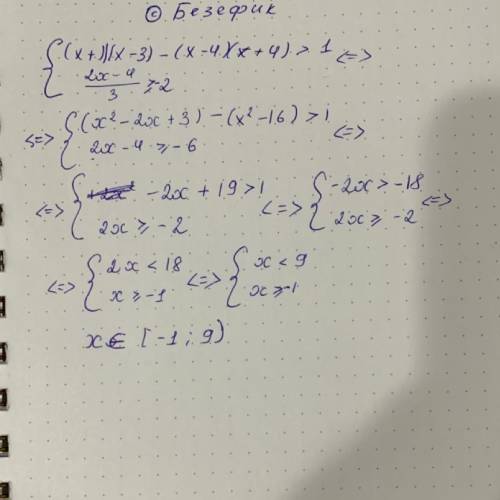 © Безефик
{ (x+1)(x-3) - (x-4)(x+4) > 1 <=>
2x-4/3 ≥ -2
<=> { (x² - 2x + 3) - (x² - 16) > 1 <=>
2x - 4 ≥ -6
<=> { -2x + 19 > 1 <=> { -2x > -18 <=>
2x ≥ -2 2x ≥ -2
<=> { 2x < 18 <=> { x < 9
x ≥ -1 x ≥ -1
x ∈ [-1; 9)